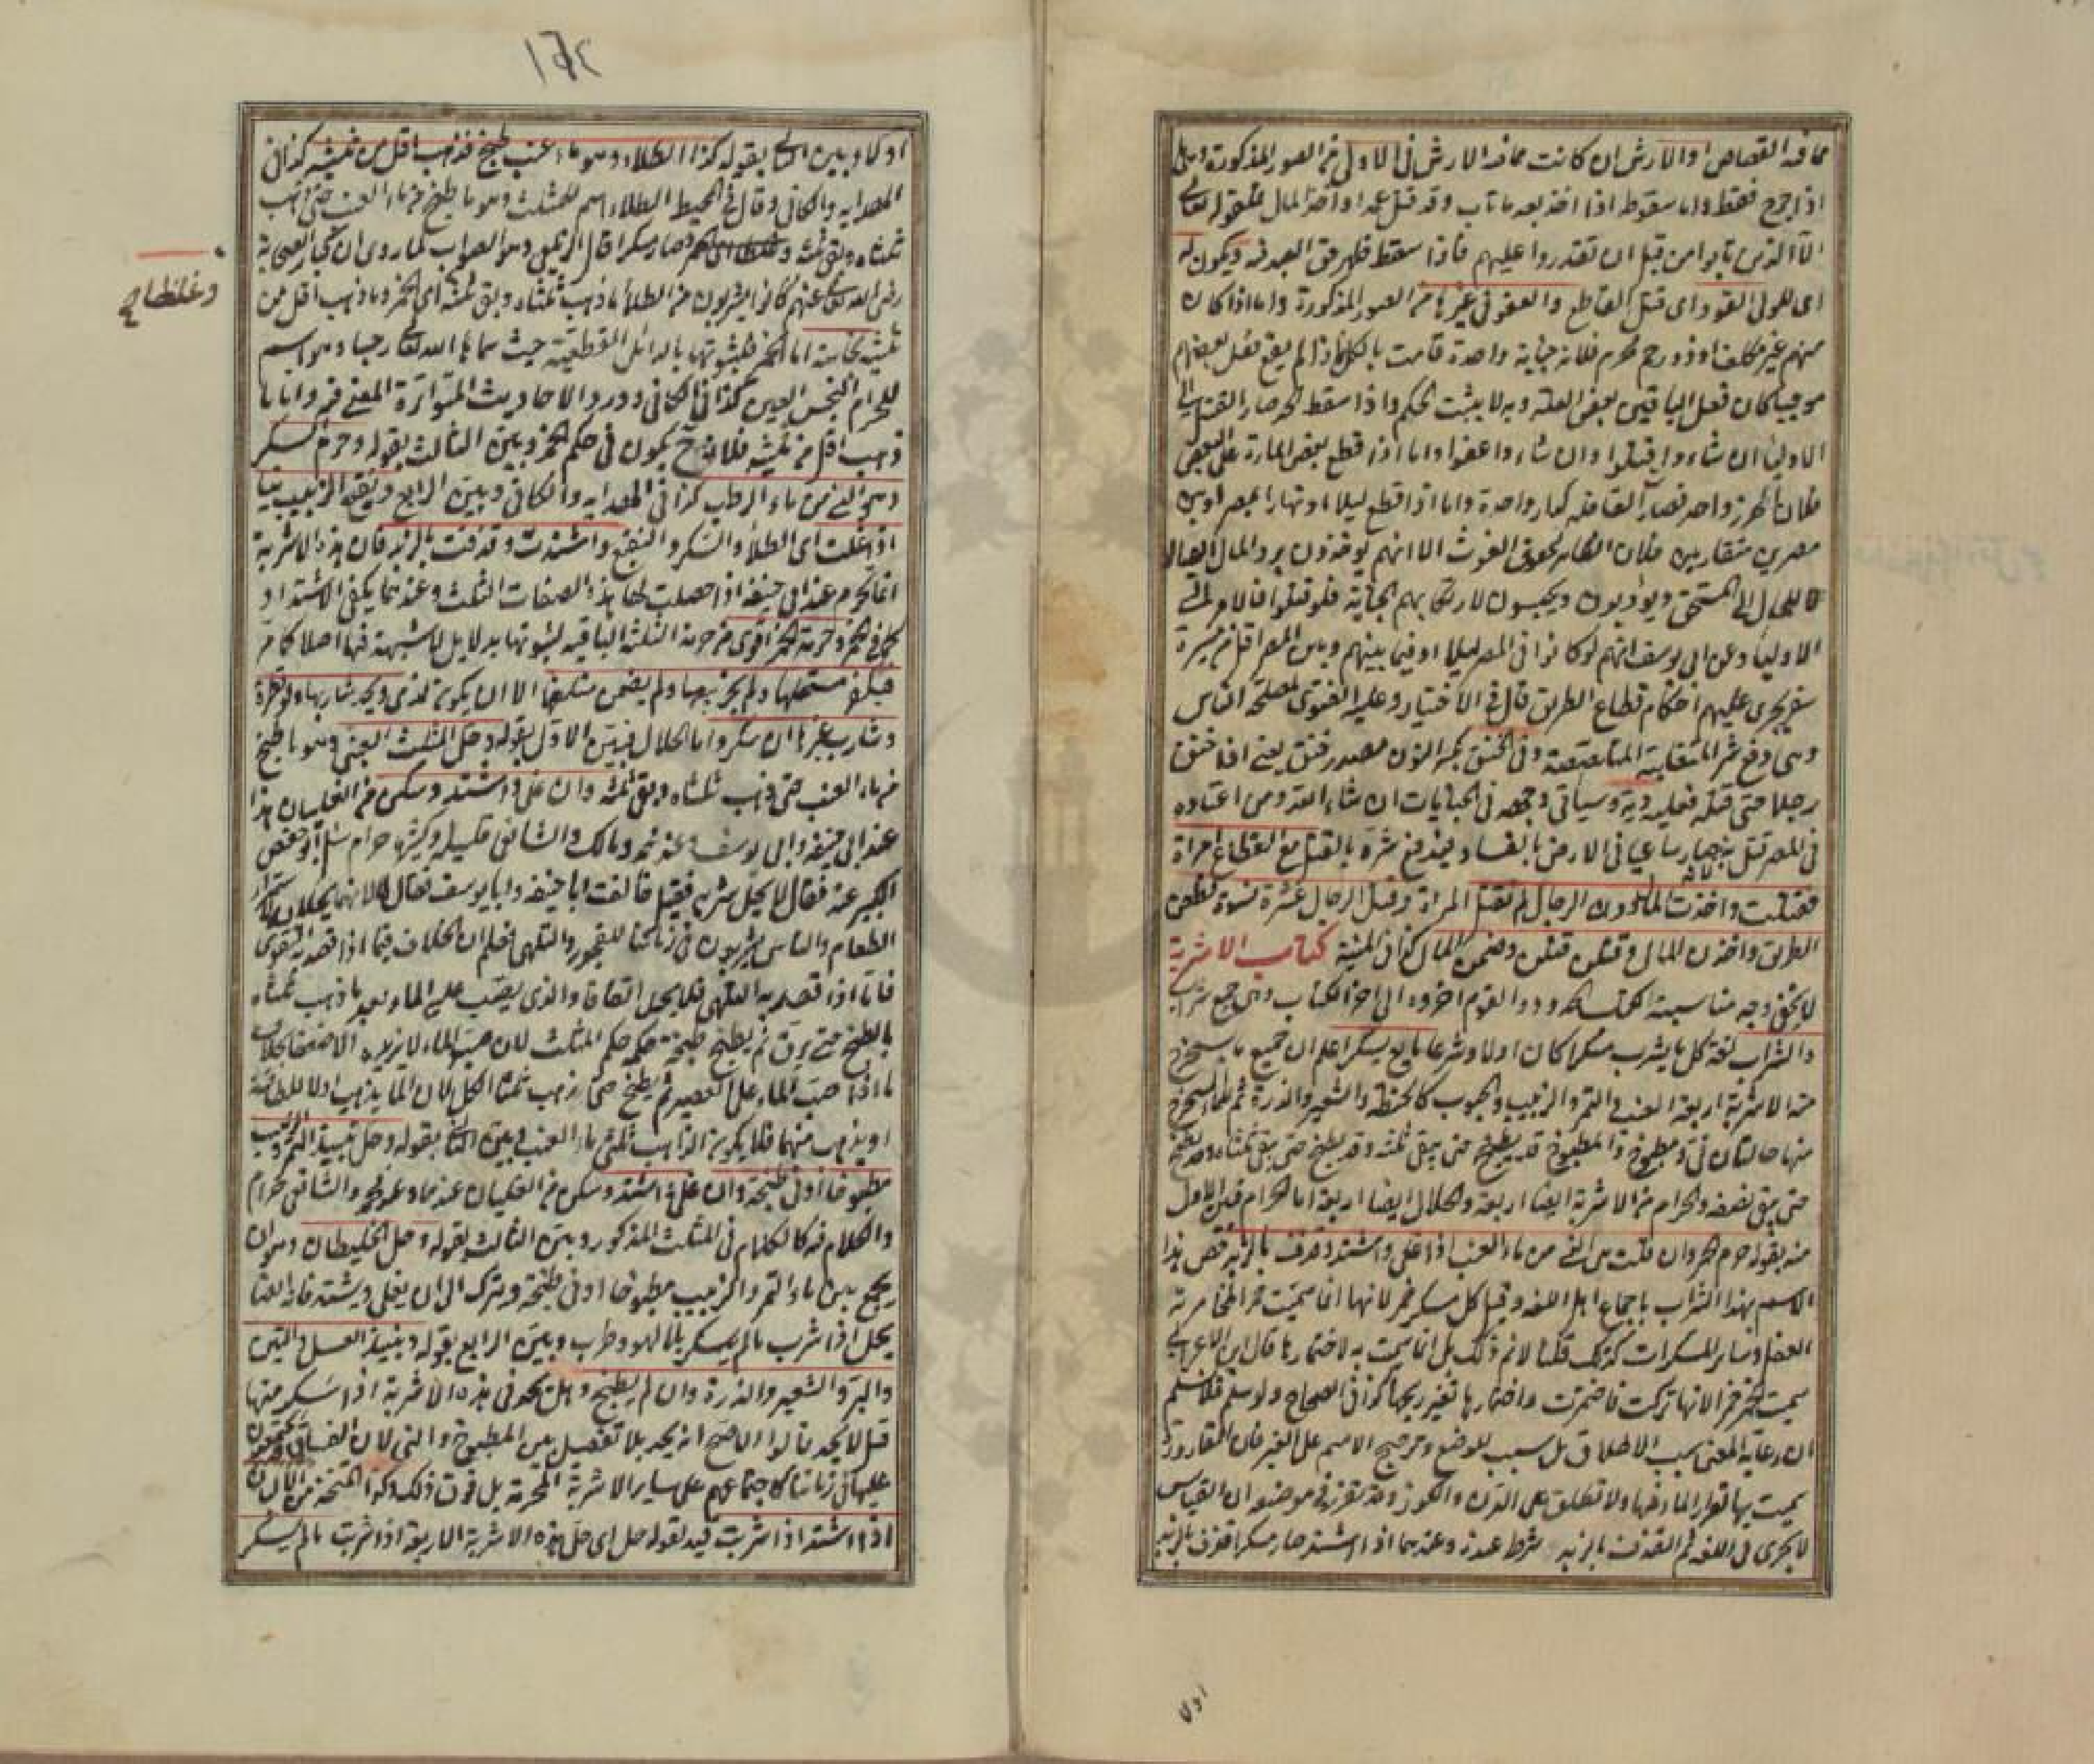 مما فيه القصاص او الارش ان كانت مما فيه الارش فى الاولى من الصور المذكورة
اذا جرح فقط واما سقوطه اذا اخذ بعد ما تاب وقد قتل عمدا واخذ المال فلقوله تعالى
الا الذين تابوا من قبل ان تقدروا عليهم فاذا سقط ظهر حق العبد فيه ويكون له
اى للولى القود اى قتل القاطع والعفو فى غيرها من الصور المذكورة واما اذا كان
منهم غير مكلف او ذو رحم محرم فلانه جناية واحدة قامت بالكل فاذا لم يقع فعل بعضهم
موجبا كان فعل الباقين بعض العلة وبه لا يثبت الحكم واذا سقط الحد صار القتل الى
الاولياء ان شاءوا قتلوا وان شاءوا عفوا واما اذا قطع بعض المارة على البعض
فلان الحرز واحد فصار القافلة كدار واحدة واما اذا قطع ليلا او نهارا بمصر او بين
مصرين متقاربين فلان الظاهر لحوق الغوث الا انهم يؤخذون برد المال ايصالا
للمال الى المستحق ويؤدبون ويحبسون لارتكابهم الجناية فلو قتلوا فالامر الى
الاولياء وعن ابى يوسف انهم لو كانوا فى المصر ليلا او فيما بينهم وبين المصر اقل من مسيرة
سفر يجرى عليهم احكام قطاع الطريق قال فى الاختيار وعليه الفتوى لمصلحة الناس
وهى دفع شر المتغلبة المتلصصة وفى الخنق بكسر النون مصدر خنق يعنى اذا خنق
رجلا حتى قتله فعليه دية وسياتى وجهه فى الجنايات ان شاء الله ومن اعتاده
فى المصر قتل به لانه صار ساعيا فى الارض بالفساد فيدفع شره بالقتل مع القطاع امراة
فقتلت واخذت المال دون الرجال لم تقتل المراة وقتل الرجال عشرة نسوة قطعن
الطريق واخذن المال وقتلن قتلن وضمن المال كذا فى المنية كتاب الاشربة
لا يخفى وجه مناسبة الكتاب للحدود والقوم اخروه الى اخر الكتاب وهى جمع شراب
والشراب لغة كل ما يشرب مسكرا كان اولا وشرعا مايع يسكر اعلم ان جميع ما يستخرج
منه الاشربة اربعة العنب والتمر والزبيب والحبوب كالحنطة والشعير والذرة ثم الماء المستخرج
منها حالتان نى ومطبوخ والمطبوخ قد يطبخ حتى يبقى ثلثه وقد يطبخ حتى يبقى ثلثاه وقد يطبخ
حتى يبقى نصفه والحرام من الاشربة ايضا اربعة والحلال ايضا اربعة اما الحرام فبين الاول
منه بقوله حرم الخمر وان قلت هى النى من ماء العنب اذا غلى واشتد وقذف بالزبد خص هذا
الاسم بهذا الشراب باجماع اهل اللغة وقيل كل مسكر خمر لانها انما سميت خمرا لمخامرته
العقل وسائر المسكرات كذلك قلنا لا نم ذلك بل انما سميت به لاختمارها قال ابن الاعرابى
سميت الخمر خمرا لانها تركت فاختمرت واختمارها تغير ريحها كذا فى الصحاح ولو سلم فلا نسلم
ان رعاية المعنى سبب الاطلاق بل سبب للوضع وترجيح الاسم على الغير فان القارورة
سميت بها لقرار الماء فيها ولا تطلق على الدن والكوز وقد تقرر فى موضعه ان القياس
لا يجرى فى اللغة ثم القذف بالزبد شرط عنده وعندهما اذا اشتد صار مسكرا قذف بالزبد
اولا
١٦٢
اولا وبين الثانى بقوله كذا الطلاء وهو ماء عنب طبخ فذهب اقل من ثلثيه كذا فى
الهداية والكافى وقال فى المحيط الطلاء اسم للمثلث وهو ما طبخ من ماء العنب حتى ذهب
ثلثاه وبقى ثلثه وصار مسكرا قال الزيلعى وهو الصواب لما روى ان كبار الصحابة
رضى الله تعالى عنهم كانوا يشربون من الطلاء ما ذهب ثلثاه وبقى ثلثه اى الخمر وما ذهب اقل من
ثلثيه نجاسة اما الخمر فلثبوتها بالدلائل القطعية حيث سماها الله تعالى رجسا وهو اسم
للحرام النجس العين كذا فى الكافى وورد الاحاديث المتواترة المعنى فيه واما ما
ذهب اقل من ثلثيه فلانه ح يكون فى حكم الخمر وبين الثالث بقوله وحرم السكر
وهو النى من ماء الرطب كذا فى الهداية والكافى وبين الرابع ونقيع الزبيب نيا
اذا غلت اى الطلاء والسكر والنقيع واشتدت وقذفت بالزبد فان هذه الاشربة
انما تحرم عند ابى حنيفة اذا حصلت لها هذه الصفات الثلث وعندهما يكفى الاشتداد
كما فى الخمر وحرمة الخمر اقوى من حرمة الثلثة الباقية لثبوتها بدلايل لا شبهة فيها اصلا كما مر
فيكفر مستحلها ولم يجز بيعها ولم يضمن متلفها الا ان يكون لذمى ويحد شاربها ولو قطرة
وشارب غيرها ان سكر واما الحلال فبين الاول بقوله وحل المثلث العنبى وهو ما طبخ
من ماء العنب حتى ذهب ثلثاه وبقى ثلثه وان غلى واشتد وسكن من الغليان هذا
عند ابى حنيفة وابى يوسف وعند محمد ومالك والشافعى قليله وكثيره حرام سئل ابو حفص
الكبير عنه فقال لا يحل شربه فقيل خالفت ابا حنيفة وابا يوسف فقال لا لانهما يحلان لاستمراء
الطعام والناس يشربون فى زماننا للفجور والتلهى فعلم ان الخلاف فيما اذا قصد به التقوى
فاما اذا قصد به التلهى فلا يحل اتفاقا والذى يصب عليه الماء بعد ما ذهب ثلثاه
بالطبخ حتى يرق ثم يطبخ طبخة حكمه حكم المثلث لان صب الماء لا يزيده الا ضعفا بخلاف
ما اذا صب الماء على العصير ثم يطبخ حتى يذهب ثلثا الكل لان الماء يذهب اولا للطافته
او يذهب منهما فلا يكون الذاهب ثلثى ماء العنب وبين الثانى بقوله وحل نبيذ التمر والزبيب
مطبوخا ادنى طبخة وان غلى واشتد وسكن من الغليان عندهما وعند محمد والشافعى حرام
والكلام فيه كالكلام فى المثلث المذكور وبين الثالث بقوله وحل الخليطان وهو ان
يجمع بين ماء التمر والزبيب مطبوخا ادنى طبخة ويترك الى ان يغلى ويشتد فانه ايضا
يحل اذا شرب ما لم يسكر بلا لهو وطرب وبين الرابع بقوله ونبيذ العسل والتين
والبر والشعير والذرة وان لم يطبخ وهل يحد فى هذه الاشربة اذا سكر منها
قيل لا يحد قالوا الاصح انه يحد بلا تفصيل بين المطبوخ والنى لان الفساق يجتمعون
عليها فى زماننا كاجتماعهم على سائر الاشربة المحرمة بل فوق ذلك وكذا المتخذ من الالبان
اذا اشتد اذا شربت قيد لقوله حل اى حل هذه الاشربة الاربعة اذا شربت ما لم يسكر